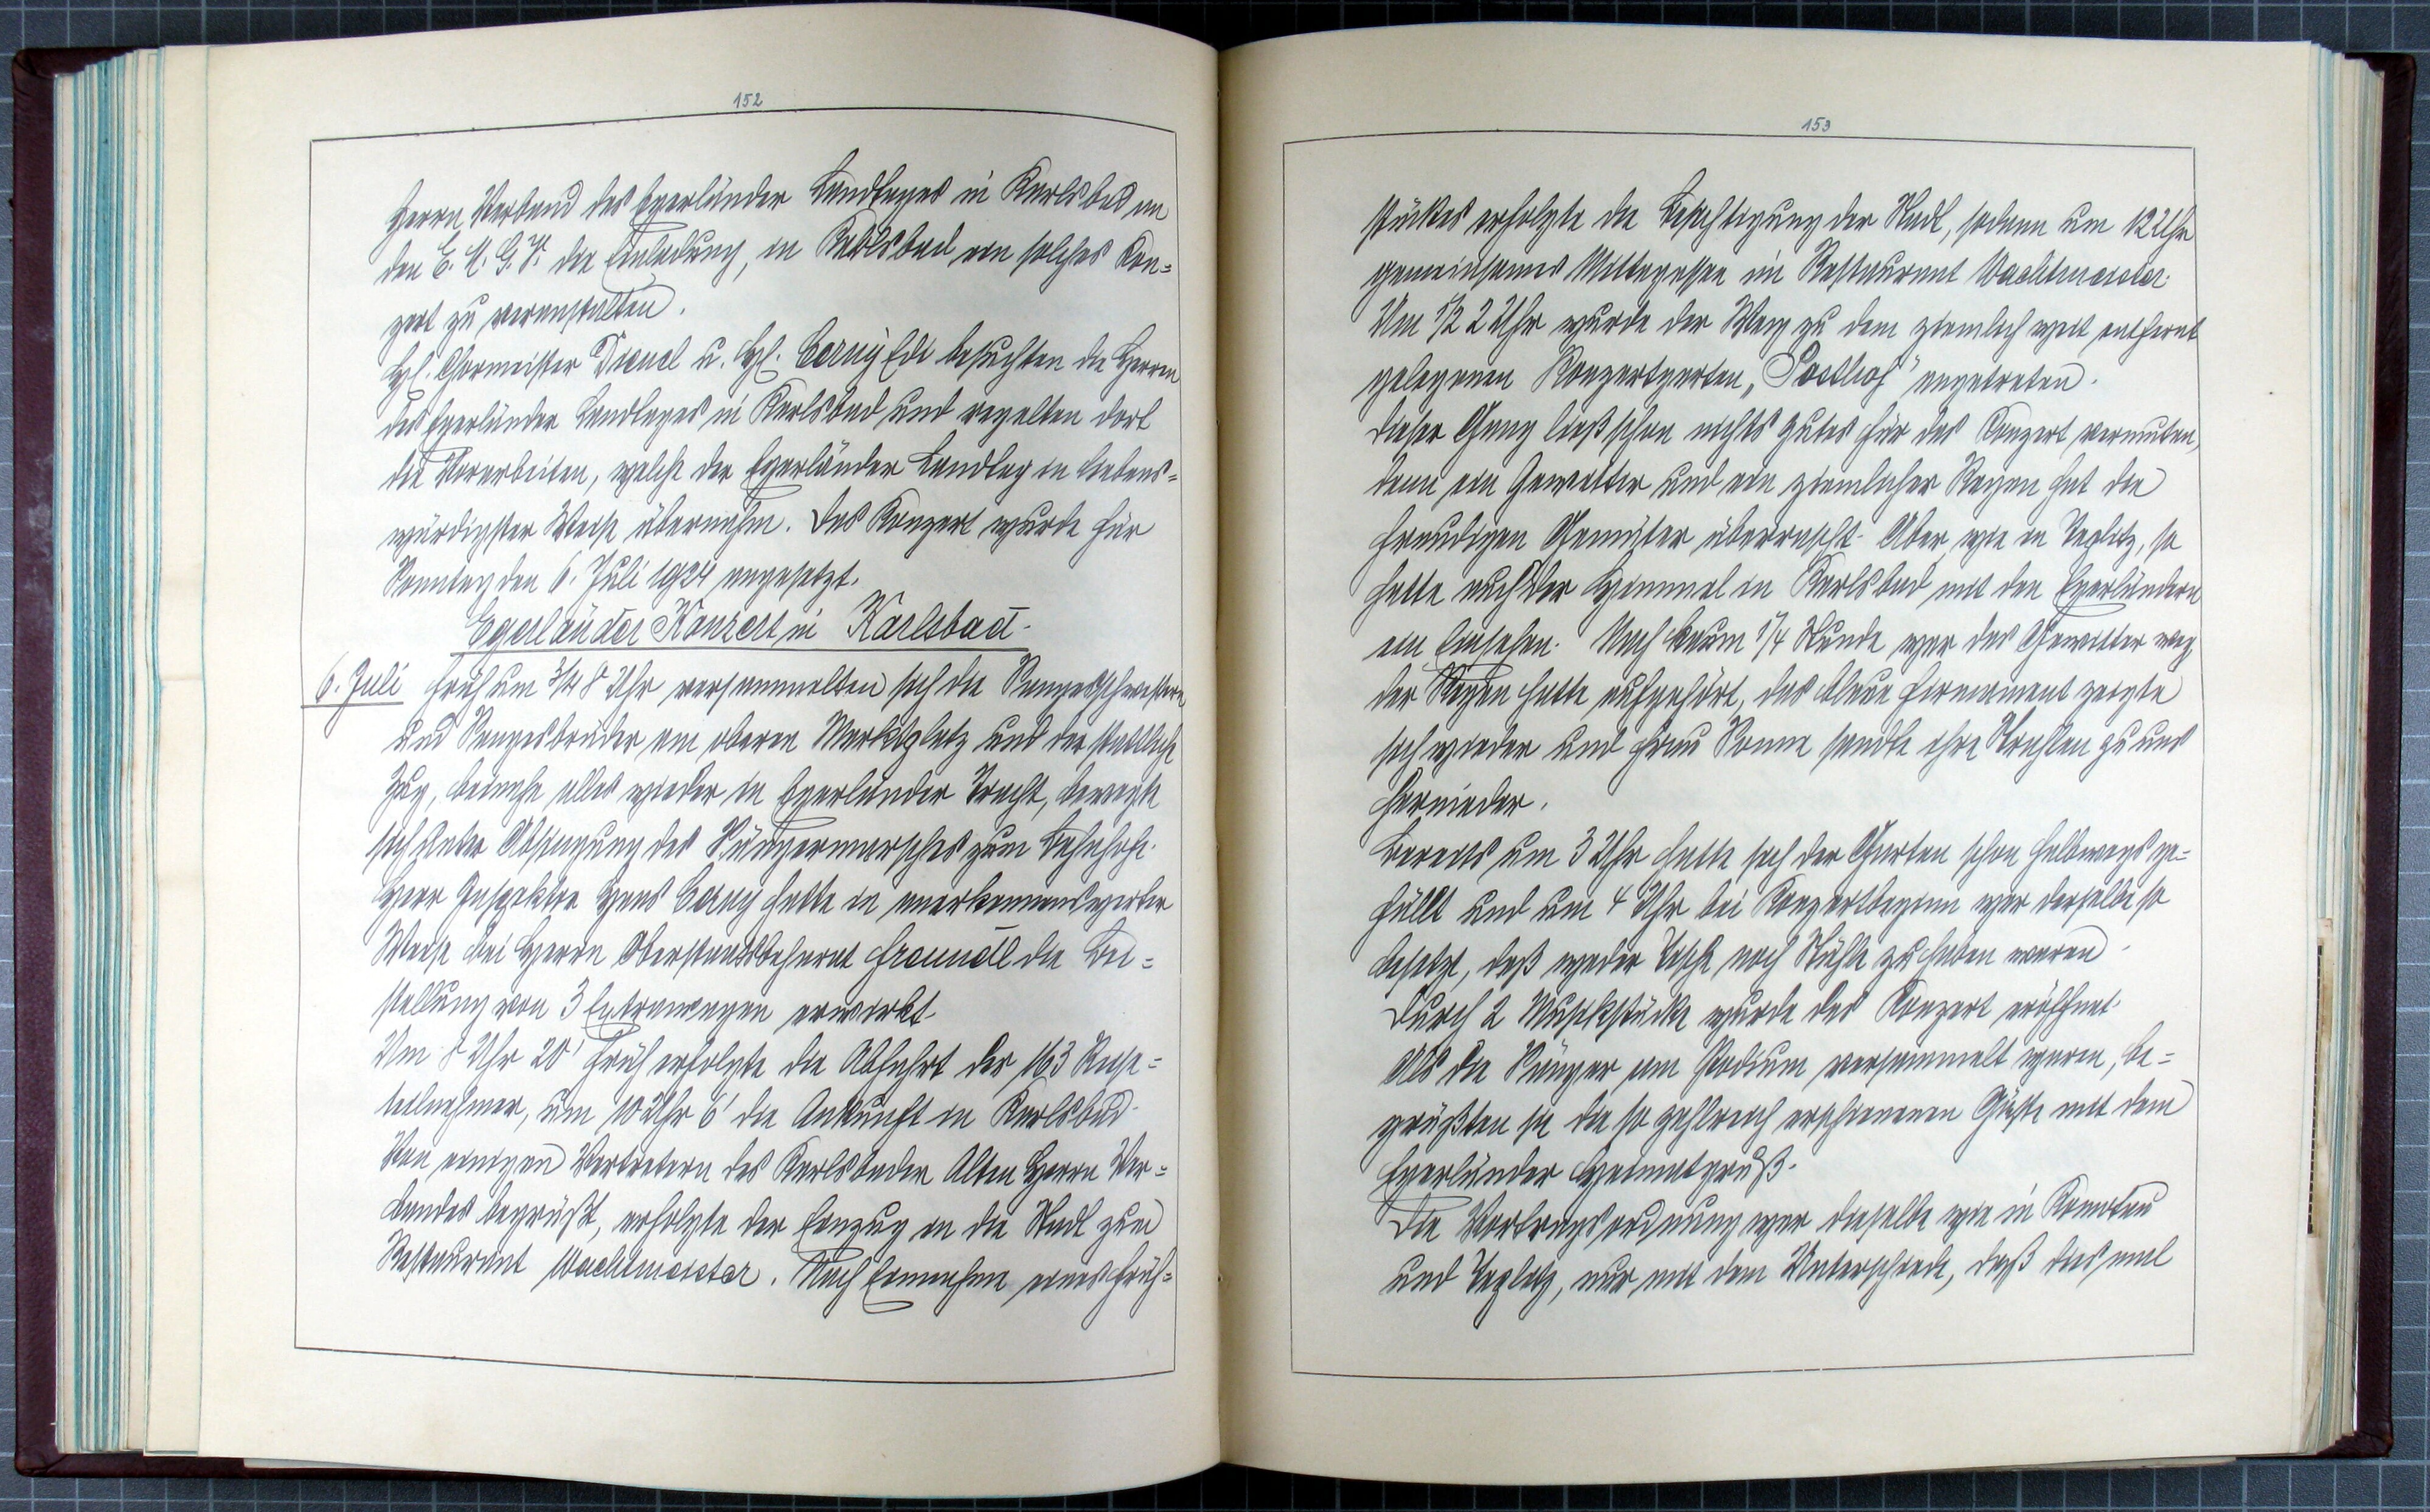 152
Herrn Verband des Egerländer Landtages in Karlsbad an
den E. M. G. V. die Einladung, in Karlsbad ein solches Kon=
zert zu veranstalten.
Hl. Chormeister Dienel u. Hl. Cerny Edi besuchten die Herren
des Egerländer Landtages in Karlsbad und regelten dort
die Vorarbeiten, welche der Egerländer Landtag in liebens=
würdigster Weise übernahm. Das Konzert wurde für
Sonntag den 6. Juli 1924 angesetzt.
Egerländer Konzert in Karlsbad.
6. Juli Früh um 3/4 8 Uhr versammelten sich die Sangesschwestern
und Sangesbrüder am oberen Marktplatz und der stattliche
Zug, beinahe alles wieder in Egerländer Tracht, bewegte
sich unter Absingung des Sängermarsches zum Bahnhofe.
Herr Inspektor Hans Cerny hatte in anerkennenswerter
Weise bei Herrn Oberstaatsbahnrat Freundl die Bei=
stellung von 3 Extrawagen erwirkt.
Um 8 Uhr 20' früh erfolgte die Abfahrt der 163 Reise=
teilnehmer, um 10 Uhr 6' die Ankunft in Karlsbad.
Von einigen Vertretern des Karlsbader Alten Herrn Ver=
bandes begrüßt, erfolgte der Einzug in die Stadt zum
Restaurant Wachtmeister. Nach Einnahme eines Früh=
153
stückes erfolgte die Besichtigung der Stadt, sodann um 12 Uhr
gemeinsames Mittagessen im Restaurant Wachtmeister.
Um 1/2 2 Uhr wurde der Weg zu dem ziemlich weit entfernt
gelegenen Konzertgarten „Posthof" angetreten.
Dieser Gang ließ schon nichts gutes für das Konzert vermuten,
denn ein Gewitter und ein ziemlicher Regen hat die
freudigen Gemüter überrascht. Aber wie in Teplitz, so
hatte auch der Himmel in Karlsbad mit den Egerländern
ein Einsehen. Nach kaum 1/4 Stunde war das Gewitter weg,
der Regen hatte aufgehört, das blaue Firmament zeigte
sich wieder und Frau Sonne sandte ihre Strahlen zu uns
hernieder.
Bereits um 3 Uhr hatte sich der Garten schon halbwegs ge=
füllt und um 4 Uhr bei Konzertbeginn war derselbe so
besetzt, daß weder Tische noch Stühle zu haben waren.
Durch 2 Musikstücke wurde das Konzert eröffnet.
Als die Sänger am Podium versammelt waren, be=
grüßten sie die so zahlreich erschienenen Gäste mit dem
Egerländer Heimatgruß.
Die Vortragsordnung war dieselbe wie in Komotau
und Teplitz, nur mit dem Unterschiede, daß dasmal